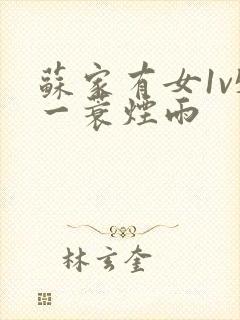 蘇家有女1v
一蓑煙雨
林玄奎